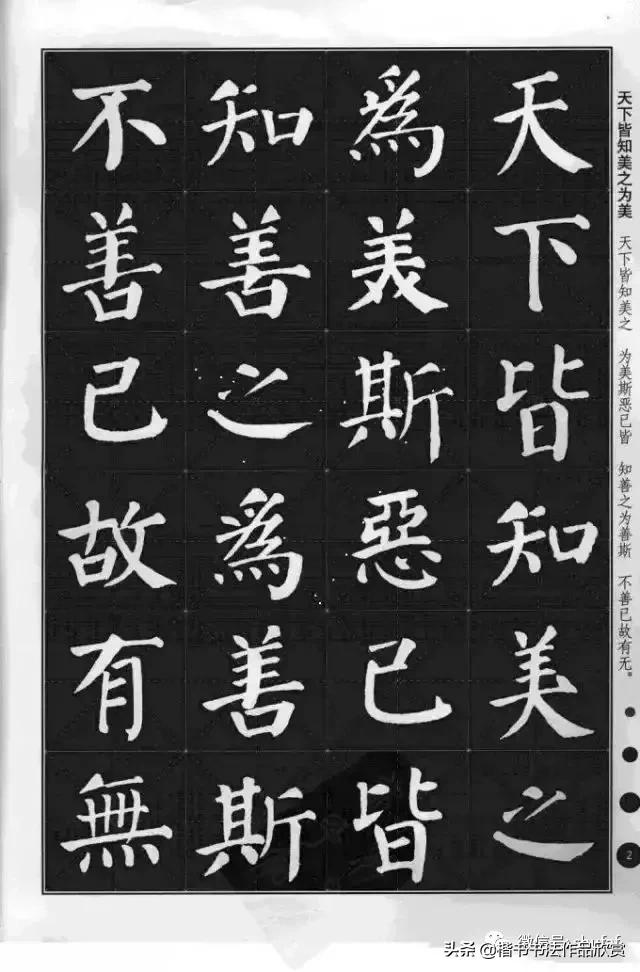 天下皆知美之
為美斯惡已皆
知善之為善斯
不善已故有無
天下皆知美之为美
天下皆知美之 为美斯恶已皆 知善之为善斯 不善已故有无。
2
头条@楷书书法作品欣赏